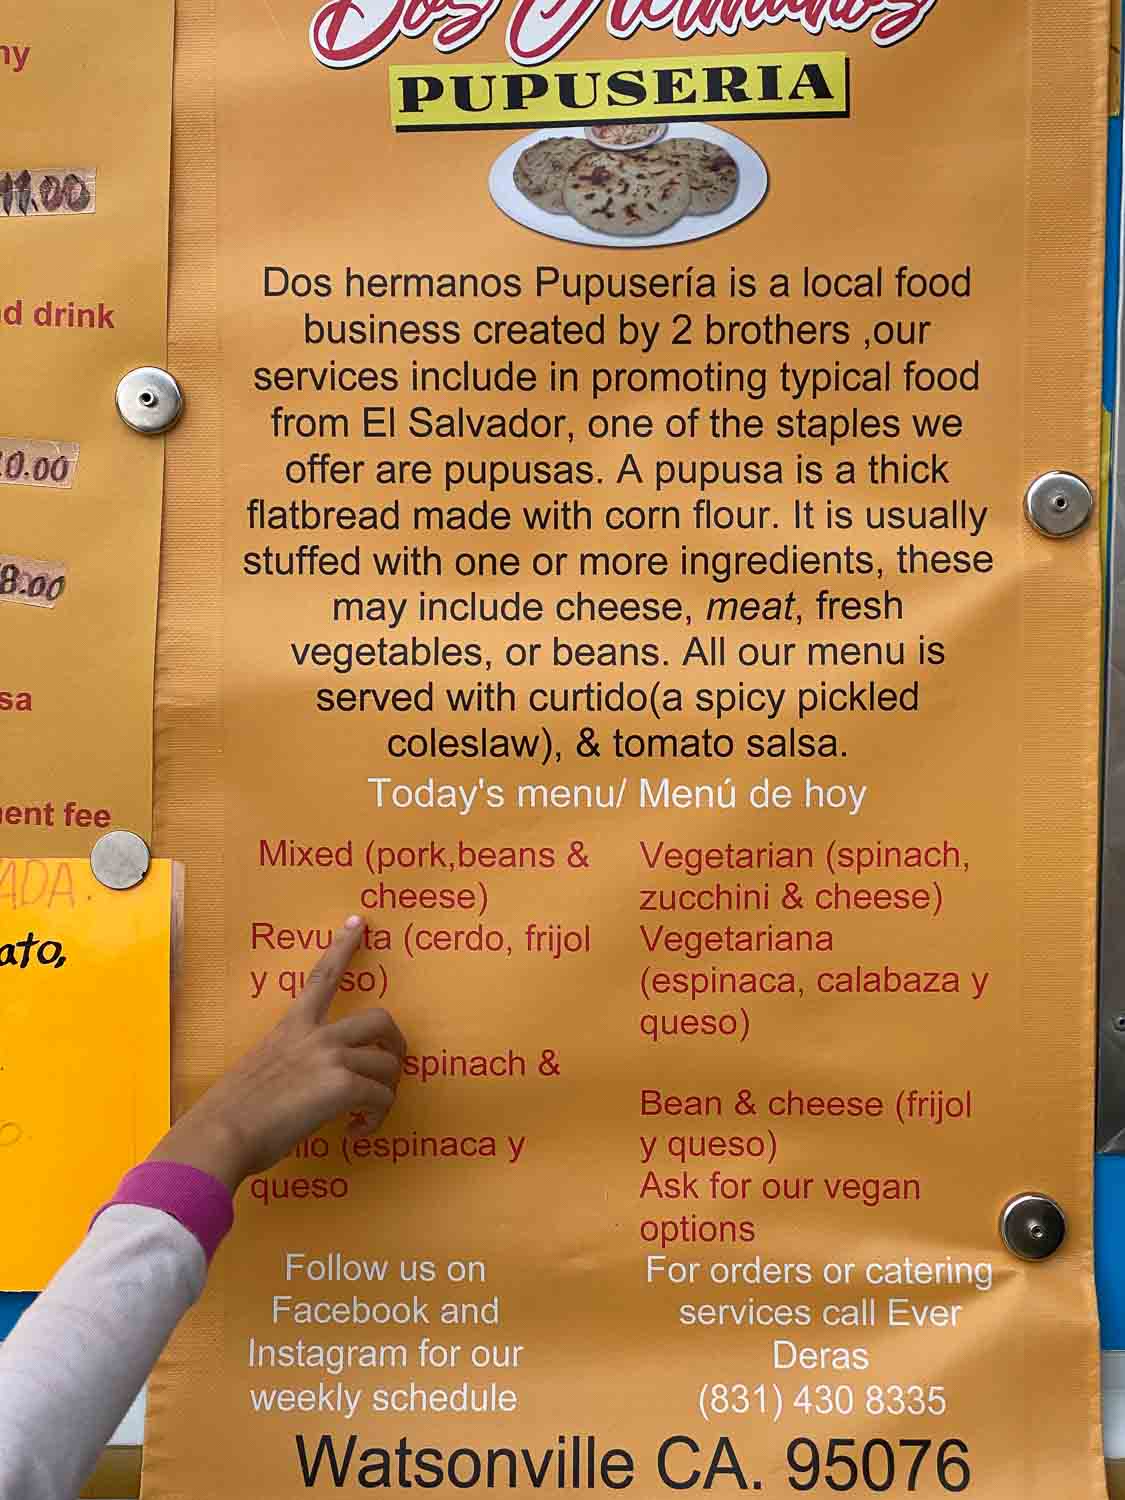 Dos Hermanos
PUPUSERIA
Dos hermanos Pupusería is a local food
business created by 2 brothers ,our
services include in promoting typical food
from El Salvador, one of the staples we
offer are pupusas. A pupusa is a thick
flatbread made with corn flour. It is usually
stuffed with one or more ingredients, these
may include cheese, meat, fresh
vegetables, or beans. All our menu is
served with curtido(a spicy pickled
coleslaw), & tomato salsa.
Today's menu/ Menú de hoy
Mixed (pork,beans &
cheese)
(cerdo, frijol
y
spinach &
(espinaca y
queso
Vegetarian (spinach,
zucchini & cheese)
Vegetariana
(espinaca, calabaza y
queso)
Bean & cheese (frijol
y queso)
Ask for our vegan
options
Follow us on
Facebook and
Instagram for our
weekly schedule
For orders or catering
services call Ever
Deras
(831) 430 8335
Watsonville CA. 95076
11.00
drink
8.00
fee